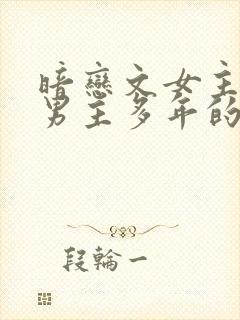 暗戀文女主
男主多年的
段輪一